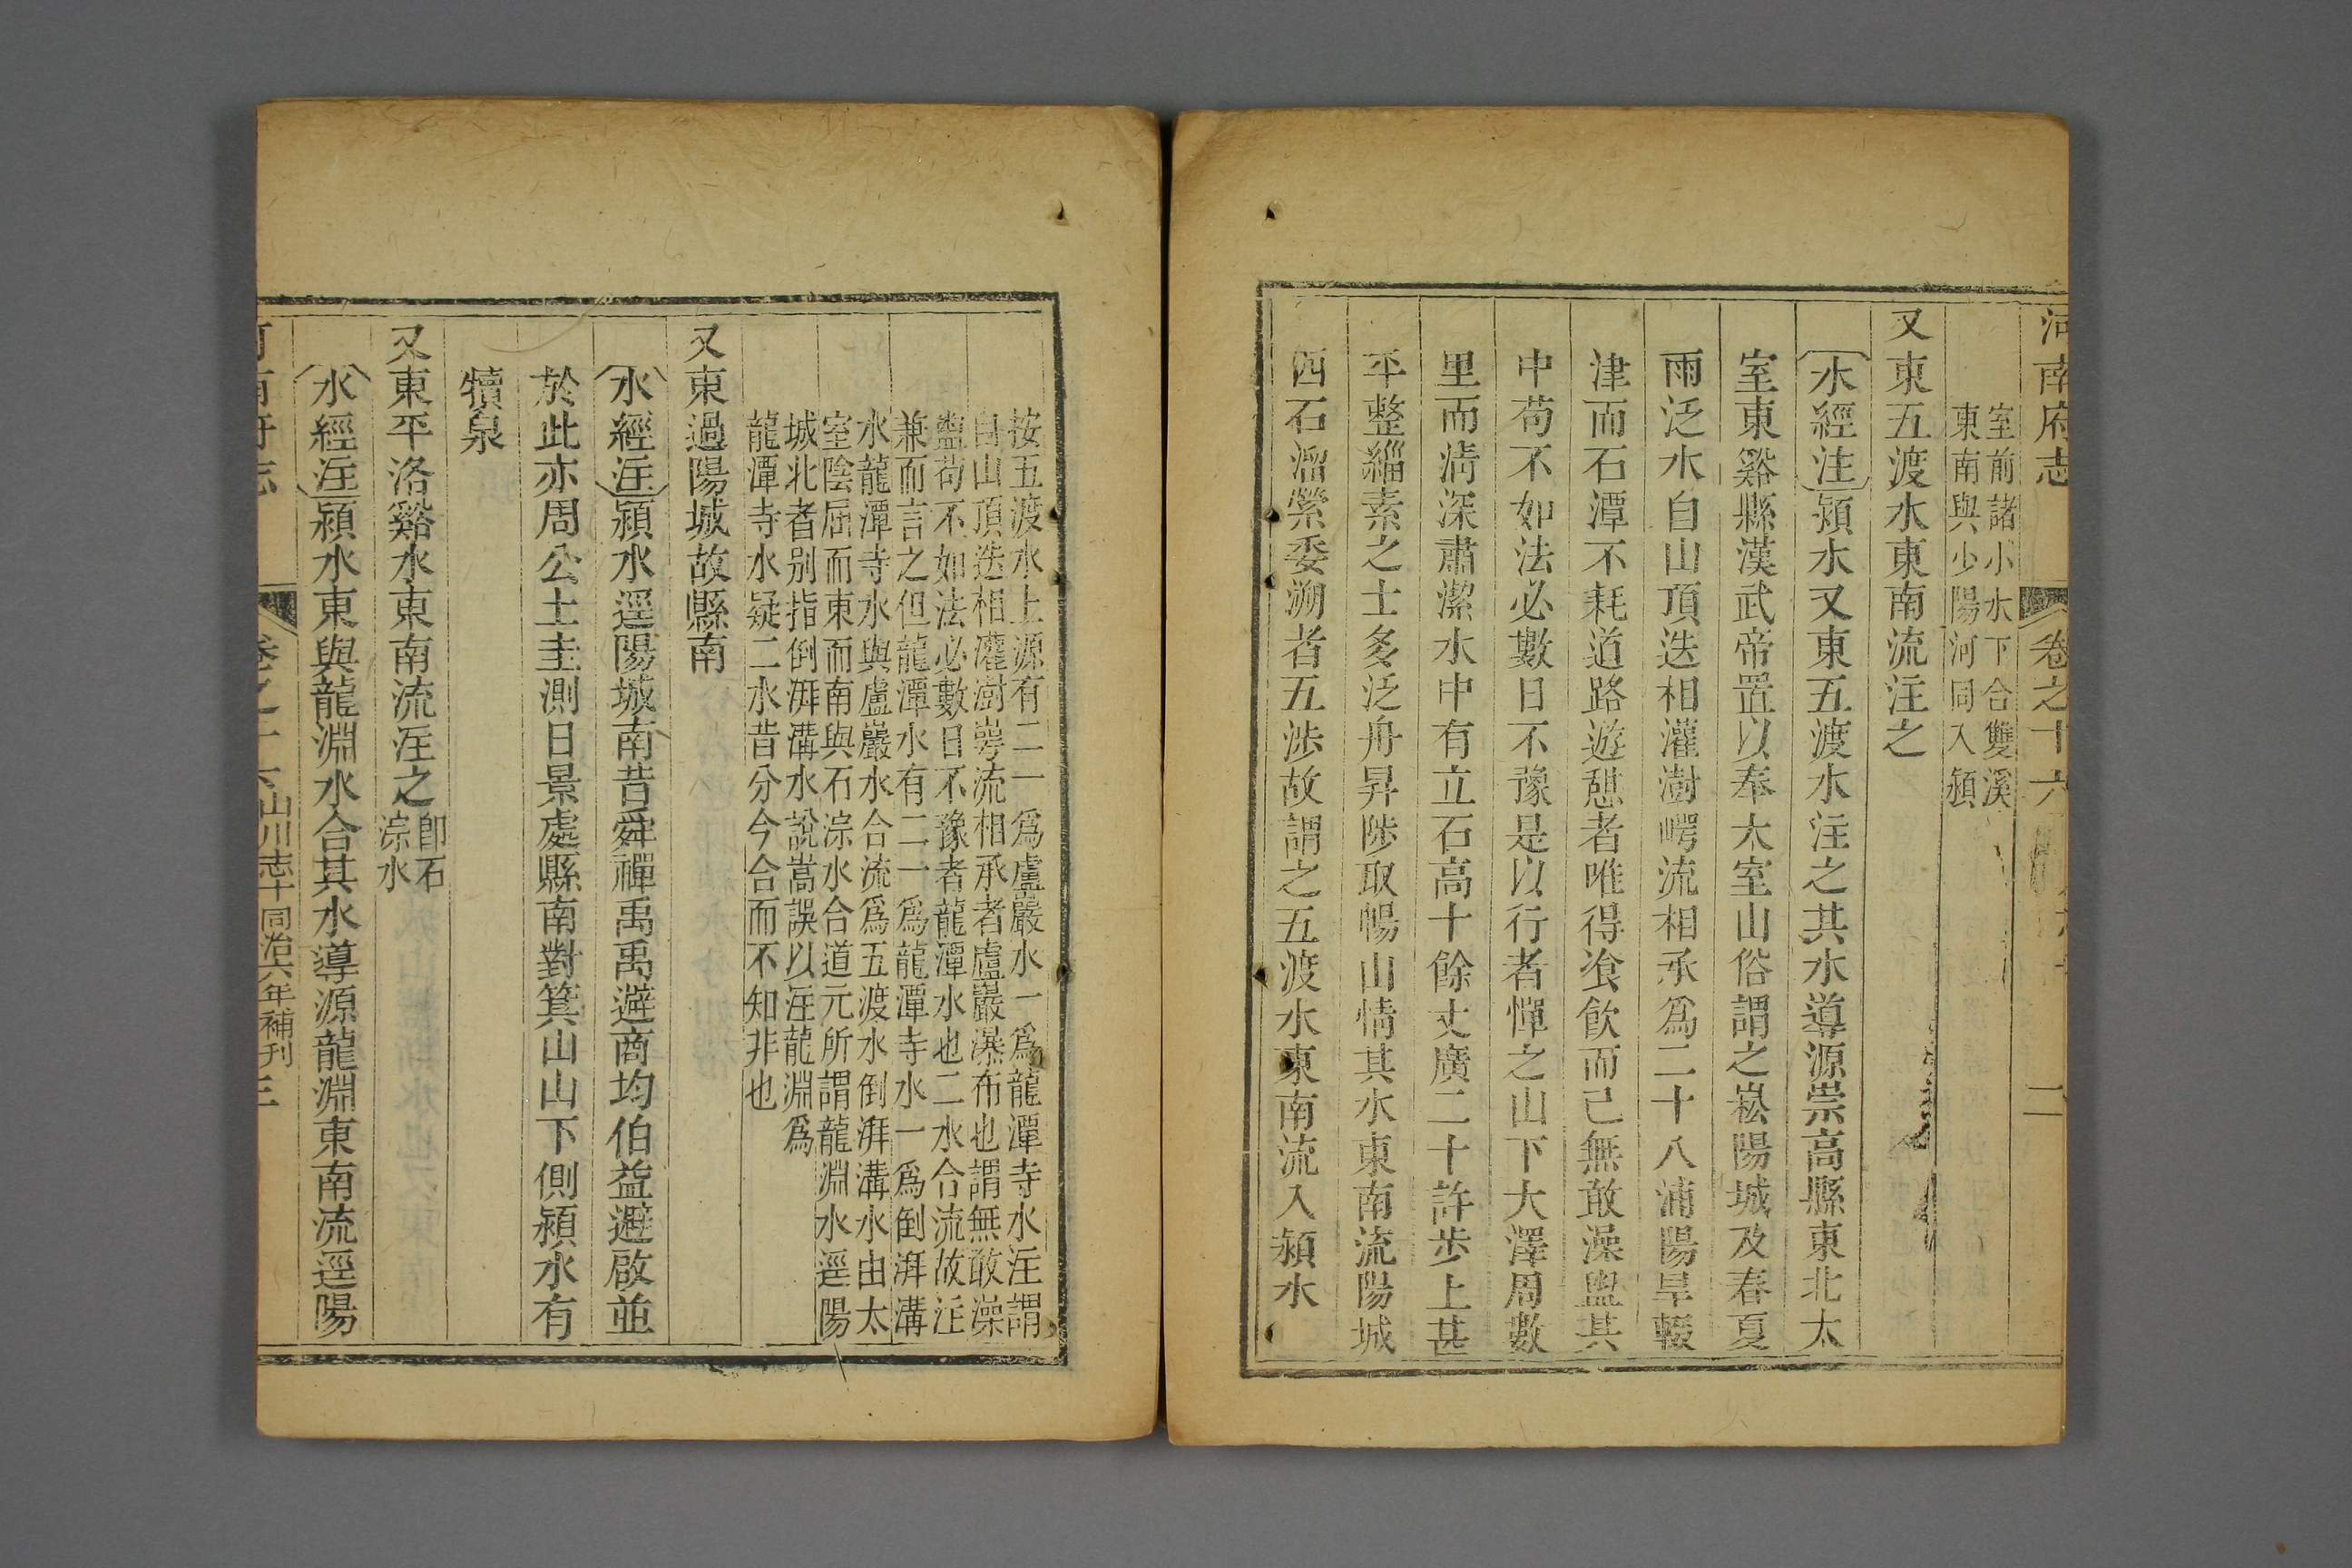 河南府志 卷之十六 二
室前諸小水下合雙溪
東南與少陽河同入潁
又東五渡水東南流注之
水經注潁水又東五渡水注之其水導源崇高縣東北太
室東谿縣漢武帝置以奉太室山俗謂之崧陽城及春夏
雨泛水自山頂迭相灌澍崿流相承爲二十八浦陽旱輟
津而石潭不耗道路遊憩者唯得飡飲而已無敢澡盥其
中苟不如法必數日不豫是以行者憚之山下大澤周數
里而淸深肅潔水中有立石高十餘丈廣二十許步上甚
平整緇素之士多泛舟昇陟取暢山情其水東南流陽城
西石溜縈委溯者五涉故謂之五渡水東南流入潁水
按五渡水上源有二一爲盧巖水一爲龍潭寺水注謂
自山頂迭相灌澍崿流相承者盧巖瀑布也謂無敢澡
盥苟不如法必數日不豫者龍潭水也二水合流故注
兼而言之但龍潭水有二一爲龍潭寺水一爲倒湃溝
水龍潭寺水與盧巖水合流爲五渡水倒湃溝水由太
室陰屈而東而南與石淙水合道元所謂龍淵水逕陽
城北者别指倒湃溝水說嵩誤以注龍淵爲
龍潭寺水疑二水昔分今合而不知非也
又東過陽城故縣南
水經注潁水逕陽城南昔舜禪禹禹避商均伯益避啟並
於此亦周公土圭測日景處縣南對箕山山下側潁水有
犢泉
又東平洛谿水東南流注之即石
淙水
水經注潁水東與龍淵水合其水導源龍淵東南流逕陽
河南府志 卷之十六 山川志十同治六年補刊 三